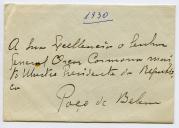 1930
A Sua Excellencia o Senhor
General Oscar Carmona
Illustre Presidente da Republi
ca
Paço de Belem